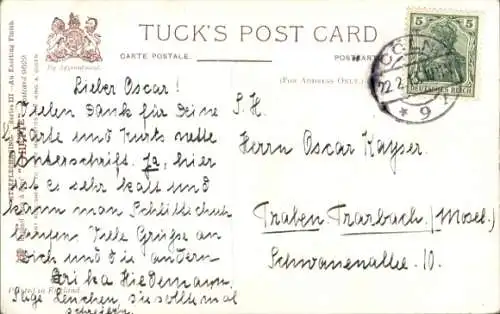 TUCK'S POST CARD
CARTE POSTALE.
POSTKART
By Appointment.
(FOR ADDRESS ONLY.)
5 5
DEUTSCHES REICH
CÖLN
22.2.13
* 9
Lieber Oscar!
Vielen Dank für Deine
Karte und Kurts nette
Unterschrift. Ja, hier
ist es sehr kalt und
kann man Schlittschuh
laufen. Viele Grüße an
Dich und die andern
Erika Hiedemann.
Sage Lenchen, sie sollte mal
schreiben.
S. H.
Herrn Oscar Kayser
Traben-Trarbach. (Mosel)
Schwanenallee. 10.
Printed in England.
Series III
An Exciting Finish